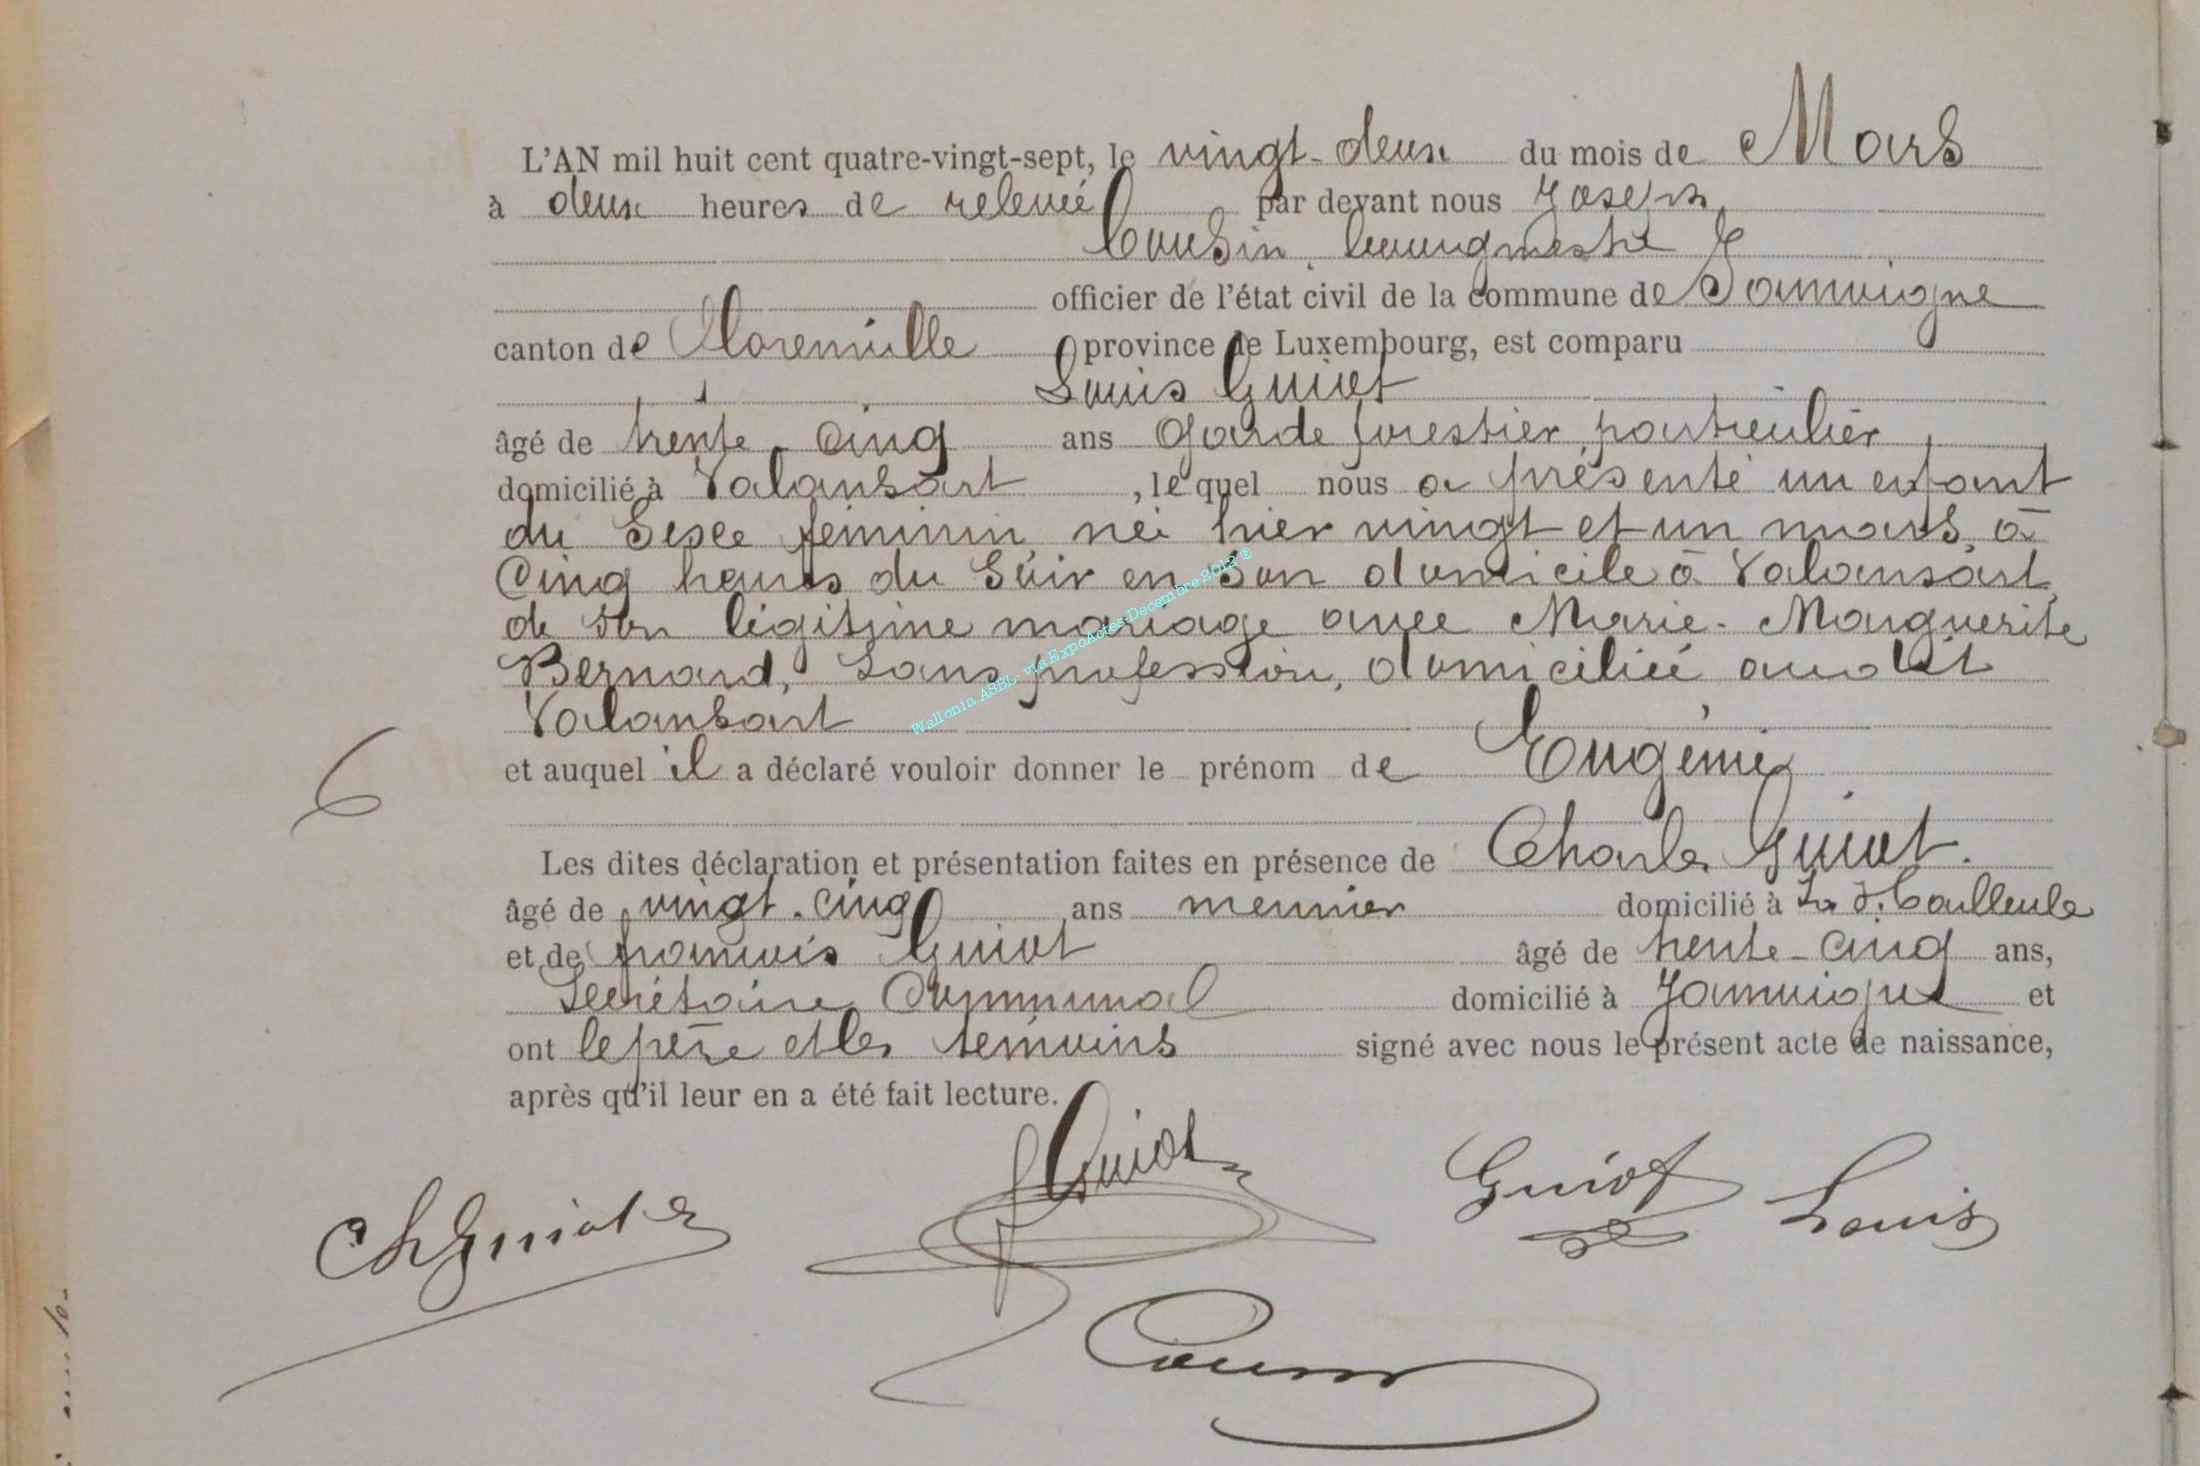 L'AN mil huit cent quatre-vingt-sept, le vingt-deux du mois de Mars
à deux heures de relevée par devant nous Joseph
Cousin, bourgmestre
officier de l'état civil de la commune de Jamoigne
canton de Florenville province de Luxembourg, est comparu
Louis Guiot
âgé de trente-cinq ans Garde forestier particulier,
domicilié à Valansart, lequel nous a présenté un enfant
du Sexe féminin né hier vingt et un mars, à
Cinq heures du Soir en Son domicile à Valansart,
de son légitime mariage avec Marie-Marguerite
Bernard, Sans profession, domiciliée audit
Valansart
et auquel il a déclaré vouloir donner le prénom de Eugénie
6
Les dites déclaration et présentation faites en présence de Charles Guiot.
âgé de vingt-cinq ans meunier domicilié à
et de françois Guiot âgé de trente-cinq ans,
Secrétaire Communal domicilié à Jamoigne et
ont le père et les témoins signé avec nous le présent acte de naissance,
après qu'il leur en a été fait lecture.
Ch Guiot
f Guiot
Guiot Louis
Cousin
Wallonia ASBL via ExpoActes-Décembre 2012 ®